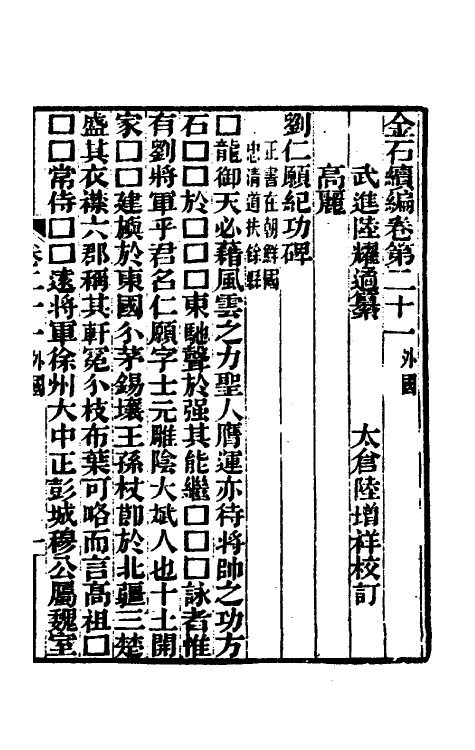 金石續編卷第二十一 外國
武進陸耀遹纂 太倉陸增祥校訂
高麗
劉仁願紀功碑
正書在朝鮮國
忠清道扶餘縣
□龍御天必藉風雲之力聖人膺運亦待將帥之功方
石□□於□□□東馳聲於强其能繼□□□詠者惟
有劉將軍乎君名仁願字士元雕陰大斌人也十土開
家□□建旟於東國尒茅錫壤王孫杖節於北疆三楚
盛其衣襟六郡稱其軒冕尒枝布葉可略而言高祖□
□□常侍□□遠將軍徐州大中正彭城穆公屬魏室
卷二十一 外國 一